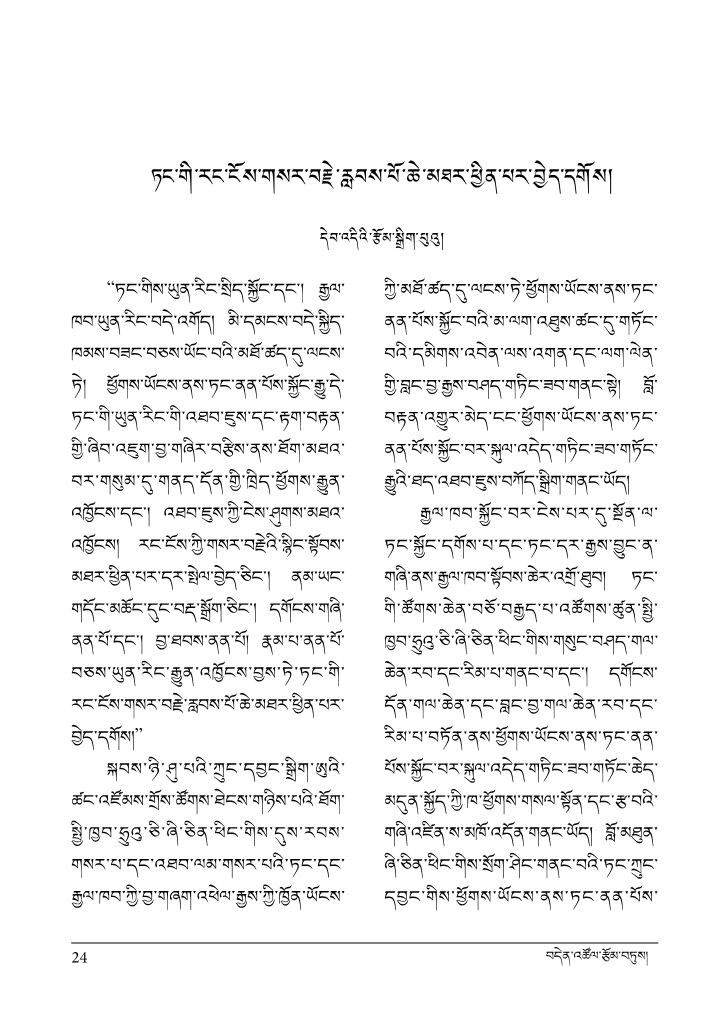 ཏང་གི་རང་ངོས་གསར་བརྗེ་རླབས་པོ་ཆེ་མཐར་ཕྱིན་པར་བྱེད་དགོས།
དེབ་འདིའི་རྩོམ་སྒྲིག་པུའུ།
“ཏང་གིས་ཡུན་རིང་སྲིད་སྐྱོང་དང་། རྒྱལ་
ཁབ་ཡུན་རིང་བདེ་འགོད། མི་དམངས་བདེ་སྐྱིད་
ཁམས་བཟང་བཅས་ཡོང་བའི་མཐོ་ཚད་དུ་ལངས་
ཏེ། ཕྱོགས་ཡོངས་ནས་ཏང་ནན་པོས་སྐྱོང་རྒྱུ་དེ་
ཏང་གི་ཡུན་རིང་གི་འཐབ་ཇུས་དང་རྟག་བརྟན་
གྱི་ཞིབ་འཇུག་བྱ་གཞིར་བརྩིས་ནས་ཐོག་མཐའ་
བར་གསུམ་དུ་གནད་དོན་གྱི་ཁྲིད་ཕྱོགས་རྒྱུན་
འཁྱོངས་དང་། འཐབ་ཇུས་ཀྱི་ངེས་ཤུགས་མཐའ་
འཁྱོངས། རང་ངོས་ཀྱི་གསར་བརྗེའི་སྙིང་སྟོབས་
མཐར་ཕྱིན་པར་དར་སྤེལ་བྱེད་ཅིང་། ནམ་ཡང་
གདོང་མཚོང་དུང་བརྡ་སྒྲོག་ཅིང་། དགོངས་གཞི་
ནན་པོ་དང་། བྱ་ཐབས་ནན་པོ། རྣམ་པ་ནན་པོ་
བཅས་ཡུན་རིང་རྒྱུན་འཁྱོངས་བྱས་ཏེ་ཏང་གི་
རང་ངོས་གསར་བརྗེ་རླབས་པོ་ཆེ་མཐར་ཕྱིན་པར་
བྱེད་དགོས།”
སྐབས་ཉི་ཤུ་པའི་ཀྲུང་དབྱང་སྒྲིག་ཨུའི་
ཚང་འཛོམས་གྲོས་ཚོགས་ཐེངས་གཉིས་པའི་ཐོག་
སྤྱི་ཁྱབ་ཧྲུའུ་ཅི་ཞི་ཅིན་ཕིང་གིས་དུས་རབས་
གསར་པ་དང་འཐབ་ལམ་གསར་པའི་ཏང་དང་
རྒྱལ་ཁབ་ཀྱི་བྱ་གཞག་འཕེལ་རྒྱས་ཀྱི་ཁྱོན་ཡོངས་
ཀྱི་མཐོ་ཚད་དུ་ལངས་ཏེ་ཕྱོགས་ཡོངས་ནས་ཏང་
ནན་པོས་སྐྱོང་བའི་མ་ལག་འཐུས་ཚང་དུ་གཏོང་
བའི་དམིགས་འབེན་ལས་འགན་དང་ལག་ལེན་
གྱི་བླང་བྱ་རྒྱས་བཤད་གཏིང་ཟབ་གནང་སྟེ། བློ་
བརྟན་འགྱུར་མེད་ངང་ཕྱོགས་ཡོངས་ནས་ཏང་
ནན་པོས་སྐྱོང་བར་སྐུལ་འདེད་གཏིང་ཟབ་གཏོང་
རྒྱུའི་ཐད་འཐབ་ཇུས་བཀོད་སྒྲིག་གནང་ཡོད།
རྒྱལ་ཁབ་སྐྱོང་བར་ངེས་པར་དུ་སྔོན་ལ་
ཏང་སྐྱོང་དགོས་པ་དང་ཏང་དར་རྒྱས་བྱུང་ན་
གཞི་ནས་རྒྱལ་ཁབ་སྟོབས་ཆེར་འགྲོ་ཐུབ། ཏང་
གི་ཚོགས་ཆེན་བཅོ་བརྒྱད་པ་འཚོགས་ཚུན་སྤྱི་
ཁྱབ་ཧྲུའུ་ཅི་ཞི་ཅིན་ཕིང་གིས་གསུང་བཤད་གལ་
ཆེན་རབ་དང་རིམ་པ་གནང་བ་དང་། དགོངས་
དོན་གལ་ཆེན་དང་བླང་བྱ་གལ་ཆེན་རབ་དང་
རིམ་པ་བཏོན་ནས་ཕྱོགས་ཡོངས་ནས་ཏང་ནན་
པོས་སྐྱོང་བར་སྐུལ་འདེད་གཏིང་ཟབ་གཏོང་ཆེད་
མདུན་སྐྱོད་ཀྱི་ཁ་ཕྱོགས་གསལ་སྟོན་དང་རྩ་བའི་
གཞི་འཛིན་ས་མཁོ་འདོན་གནང་ཡོད། བློ་མཐུན་
ཞི་ཅིན་ཕིང་གིས་སྲོག་ཤིང་གནང་བའི་ཏང་ཀྲུང་
དབྱང་གིས་ཕྱོགས་ཡོངས་ནས་ཏང་ནན་པོས་
24
བདེན་འཚོལ་རྩོམ་བཏུས།